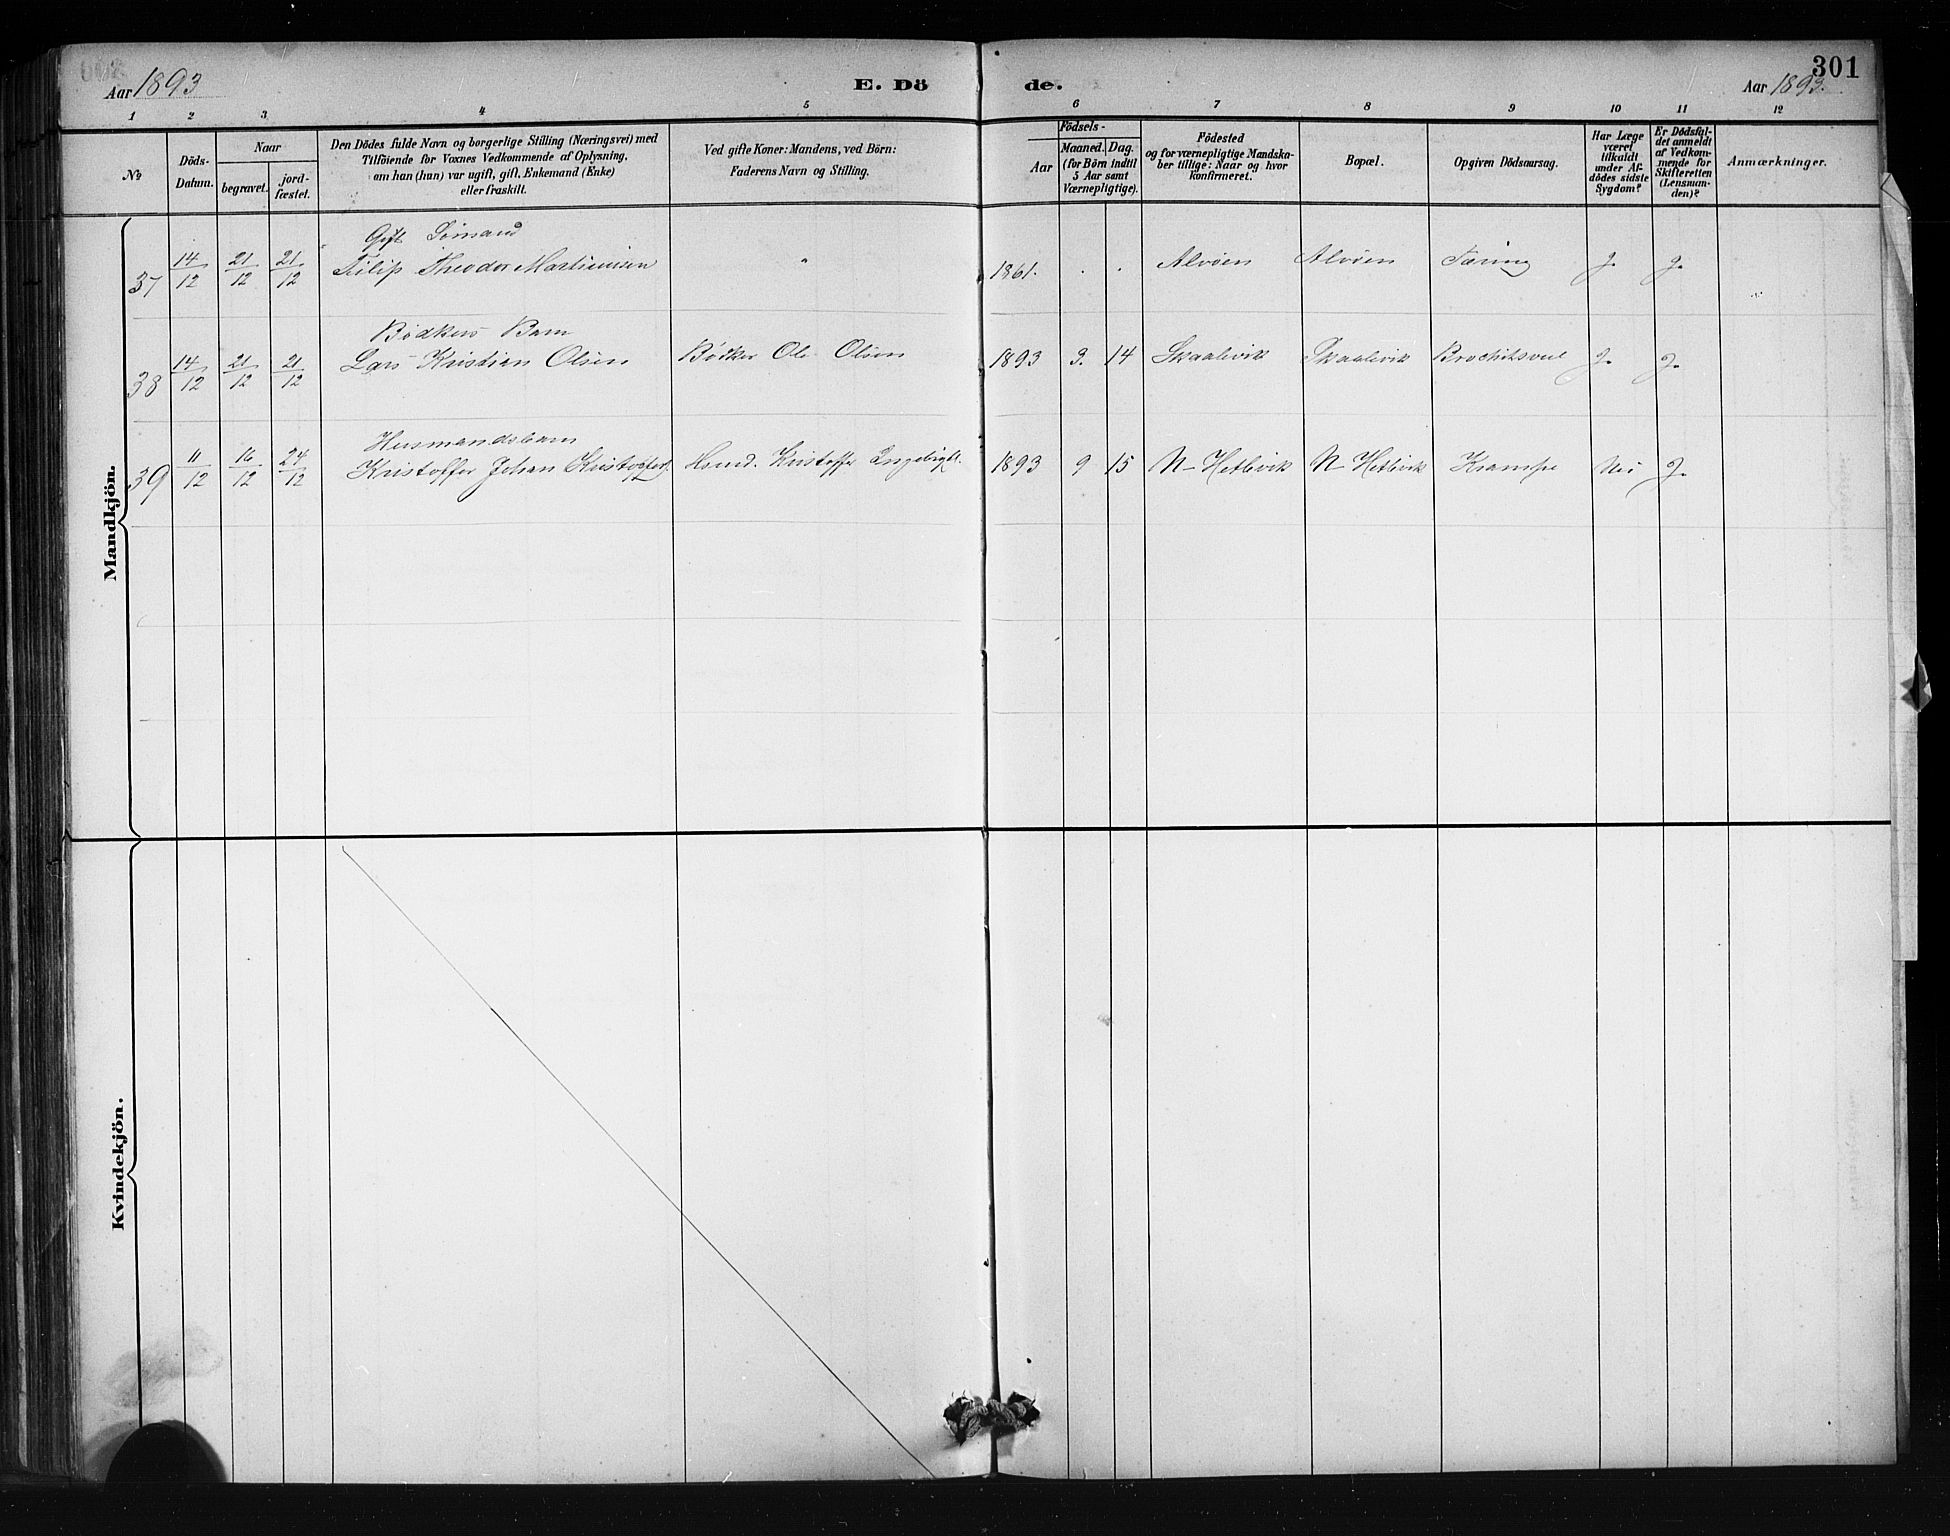 301
Aar 1893
E. Dö
de.
Aar 1893.
1 2 3 4 5 6 7 8 9 10 11 12
No
Döds-
Datum.
Naar
begravet.
jord-
fæstet.
Den Dödes fulde Navn og borgerlige Stilling (Næringsvei) med
Tilföiende for Voxnes Vedkommende af Oplysning,
om han (hun) var ugift, gift, Enkemand (Enke)
eller fraskilt.
Ved gifte Koner: Mandens, ved Börn:
Faderens Navn og Stilling.
Födsels-
Aar
Maaned. Dag.
(for Börn indtil
5 Aar samt
Værnepligtige).
Födested
og for værnepligtige Mandska-
ber tillige: Naar og hvor
konfirmeret.
Bopæl.
Opgiven Dödsaarsag.
Har Læge
været
tilkaldt
under Af-
dödes sidste
Sygdom?
Er Dödsfal-
det anmeldt
af Vedkom-
mende for
Skifteretten
(Lensman-
den)?
Anmærkninger.
Mandkjön.
Gift Sømand
37 14/12 21/12 21/12 Filip Theodor Martinusen " 1861. . . Alvøen Alvøen Tæring J. J.
Bødkers Barn
38 14/12 21/12 21/12 Lars Kristian Olsen Bødker Ole Olsen 1893 3. 14 Skaalevik Skaalevik J. J.
Husmandsbarn
39 11/12 16/12 24/12 Kristoffer Johan Kristoffers. Hsmd. Kristoffer Ingebrigt. 1893 9 15 N- Hetlevik N- Hetlevik Krampe Nei J.
Kvindekjön.